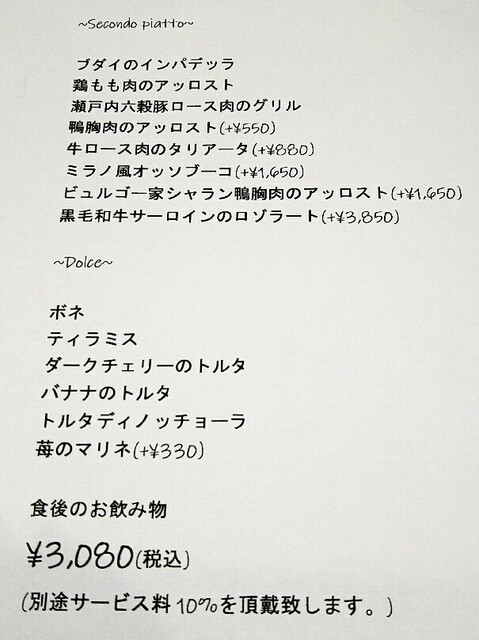 ~Secondo piatto~
ブダイのインパデッラ
鶏もも肉のアッロスト
瀬戸内六穀豚ロース肉のグリル
鴨胸肉のアッロスト(+¥550)
牛ロース肉のタリアータ(+¥880)
ミラノ風オッソブーコ(+¥1,650)
ビュルゴー家シャラン鴨胸肉のアッロスト(+¥1,650)
黒毛和牛サーロインのロゾラート(+¥3,850)
~Dolce~
ボネ
ティラミス
ダークチェリーのトルタ
バナナのトルタ
トルタディノッチョーラ
苺のマリネ(+¥330)
食後のお飲み物
¥3,080(税込)
(別途サービス料10%を頂戴致します。)